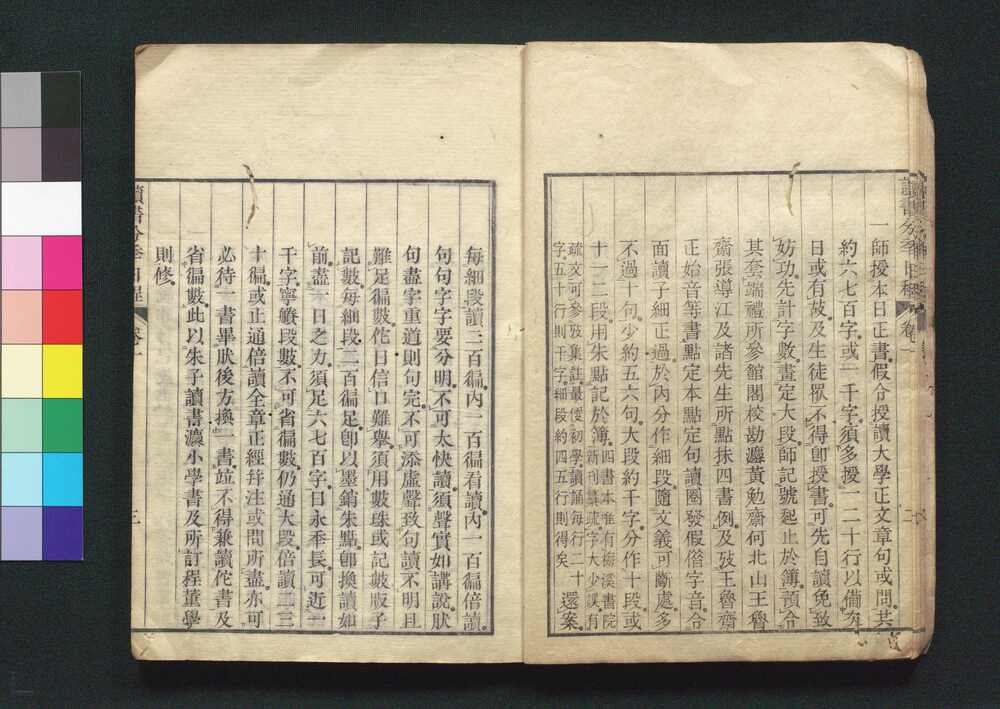 讀書分年日程 卷一 二
一師授本日正書假令授讀大學正文章句或問其
約六七百字或一千字須多授一二十行以備次
日或有故及生徒眾不得卽授書可先自讀免致
妨功先計字數畫定大段師記號起止於簿預令
其套端禮所參館閣校勘灋黃勉齋何北山王魯
齋張導江及諸先生所點抹四書例及攷王魯齋
正始音等書點定本點定句讀圈發假借字音令
面讀子細正過於內分作細段隨文義可斷處多
不過十句少約五六句大段約千字分作十段或
十一二段用朱點記於簿四書本惟有梅溪書院新刊纂疏字大少誤有
疏文可參攷集註最便初學讀誦每行二十字五十行則千字細段約四五行則得矣還案
每細段讀二百徧內一百徧看讀內一百徧倍讀
句句字字要分明不可太快讀須聲實如講說然
句盡字重道則句完不可添虛聲致句讀不明且
難足徧數佗日信口難舉須用數珠或記數版子
記數每細段二百徧足卽以墨銷朱點卽換讀如
前盡一日之力須足六七百字日永年長可近一
千字寧賸段數不可省徧數仍通大段倍讀二三
十徧或止通倍讀全章正經幷注或問所盡亦可
必待一書畢然後方換一書竝不得兼讀佗書及
省徧數此以朱子讀書灋小學書及所訂程董學
則修
讀書分年日程 卷一 三